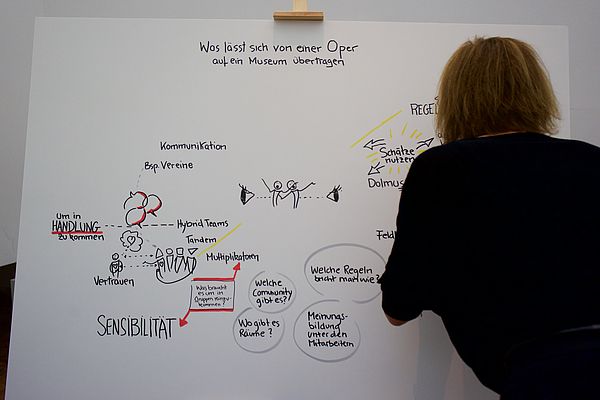 Was lässt sich von einer Oper
auf ein Museum übertragen
REGEL
Schätze
nutzen
Kommunikation
Bsp. Vereine
Um in
HANDLUNG
zu kommen
Hybrid Teams
Tandem
Multiplikatoren
Vertrauen
Was braucht
es um in
Gruppen
kommen?
SENSIBILITÄT
Welche
Community
gibt es?
Welche Regeln
bricht man wie?
Wo gibt es
Räume?
Meinungs-
bildung
unter den
Mitarbeitern